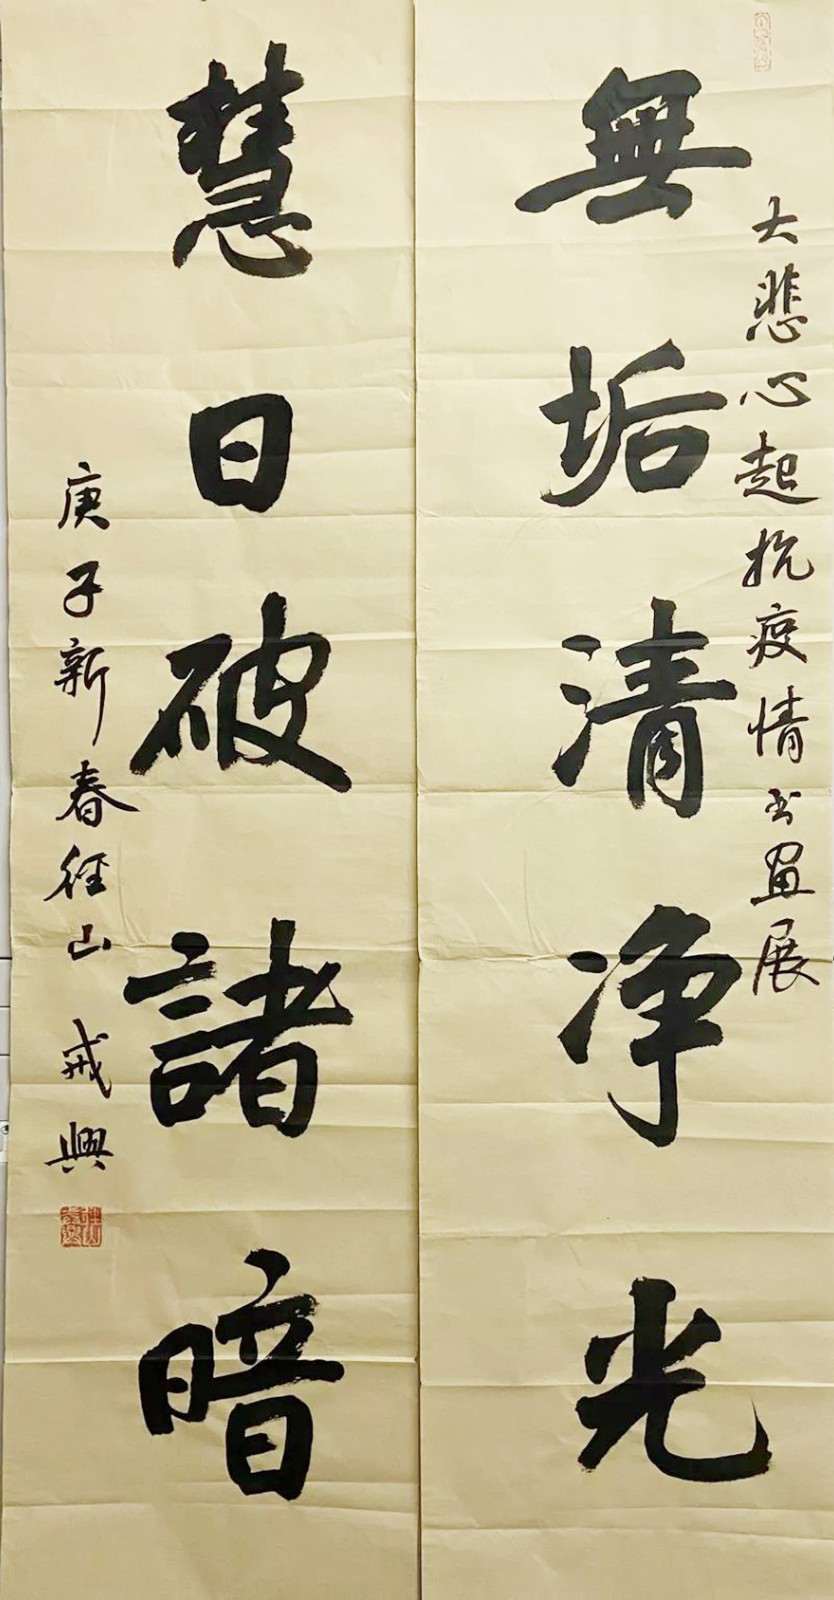 大悲心起抗疫情书画展
無垢清净光
慧日破諸暗
庚子新春径山 戒興